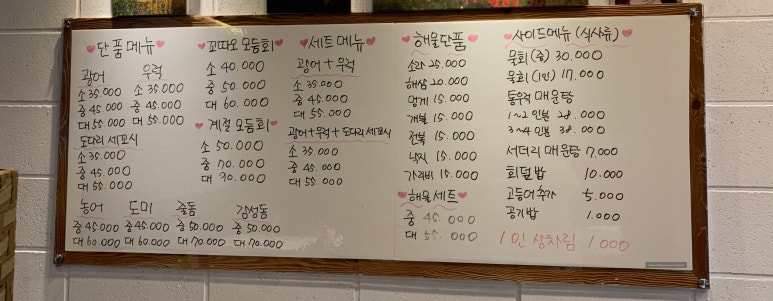 단품메뉴
광어
소 35.000
중 45.000
대 55.000
우럭
소 35.000
중 45.000
대 55.000
도다리 세꼬시
소 35.000
중 45.000
대 55.000
농어
중 45.000
대 60.000
도미
중 45.000
대 60.000
줄돔
중 50.000
대 70.000
감성돔
중 50.000
대 70.000
꼬따오 모듬회
소 40.000
중 50.000
대 60.000
계절 모듬회
소 50.000
중 70.000
대 90.000
세트메뉴
광어+우럭
소 35.000
중 45.000
대 55.000
광어+우럭+도다리 세꼬시
소 35.000
중 45.000
대 55.000
해물단품
소라 25.000
해삼 20.000
멍게 15.000
개불 15.000
전복 15.000
낙지 15.000
가리비 15.000
해물세트
중 45.000
대 55.000
사이드메뉴 (식사류)
물회 (중) 30.000
물회 (1인) 17.000
통우럭 매운탕
1~2인분 28.000
3~4인분 38.000
서더리 매운탕 7.000
회덮밥 10.000
고등어 추가 5.000
공기밥 1.000
1인 상차림 1000